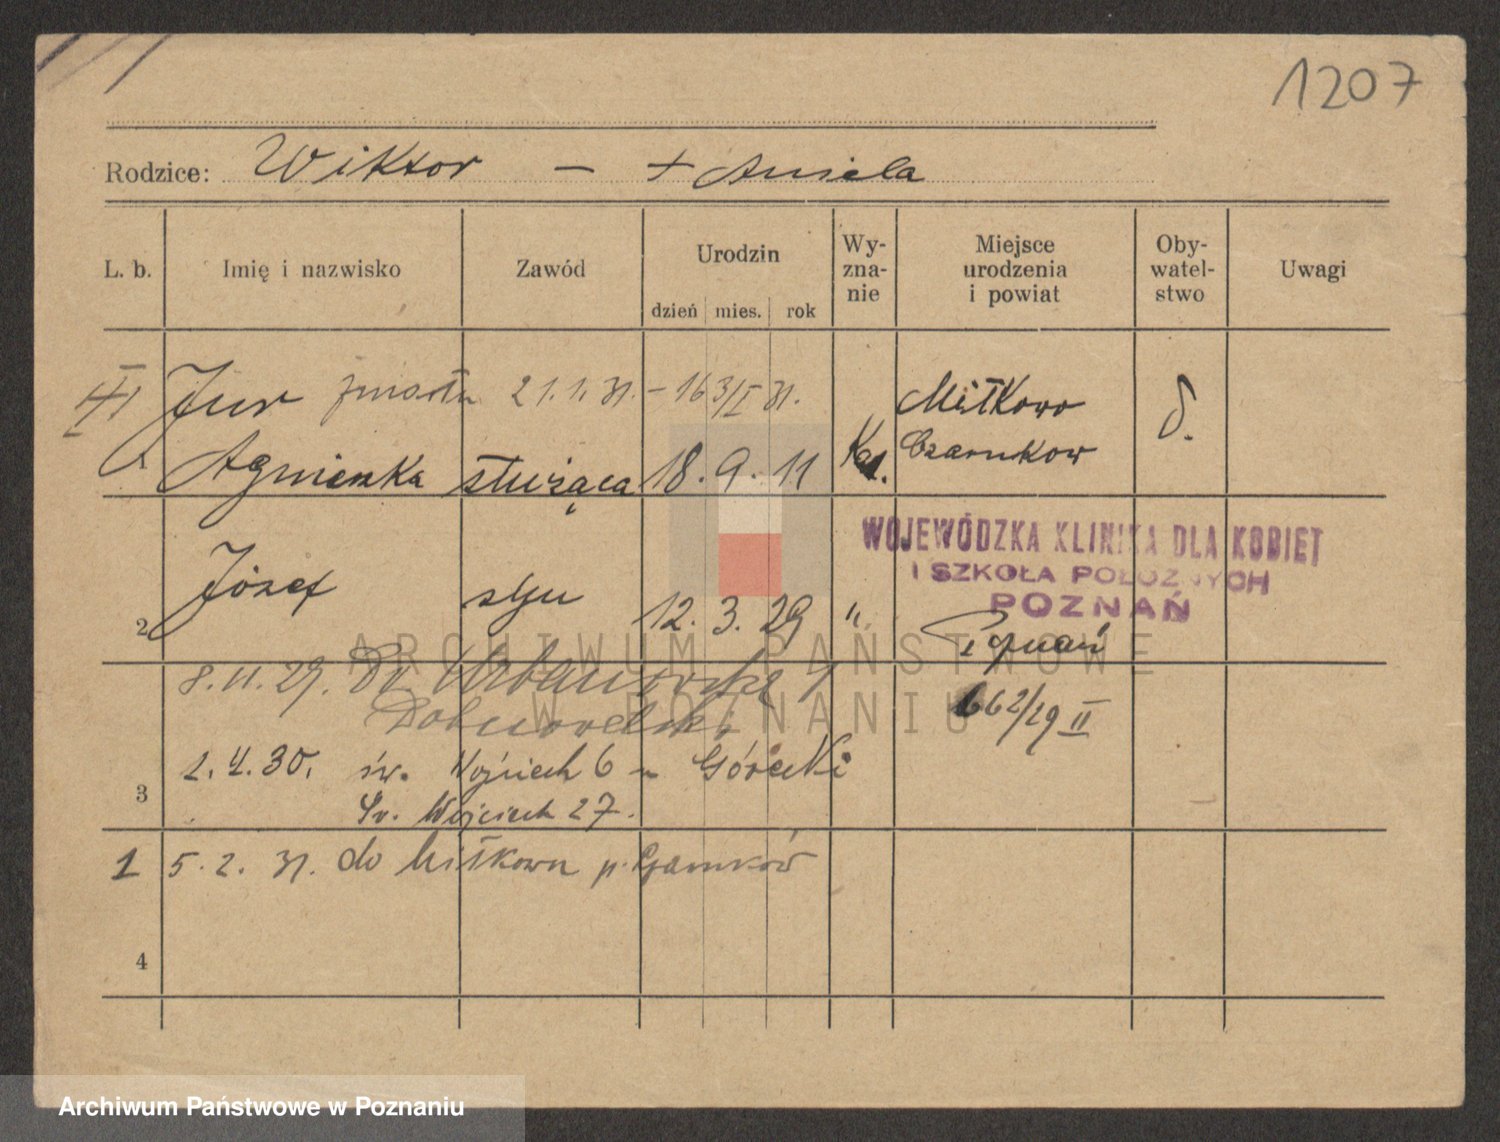 1207
Rodzice: Wiktor – + Aniela
L. b. Imię i nazwisko Zawód Urodzin dzień mies. rok Wy-zna-nie Miejsce urodzenia i powiat Oby-watel-stwo Uwagi
Jur zmarła 21.1.31. – 163/I 31. Miłkowo
1 Agnieszka służąca 18. 9. 11 Kat. Czarnków
WOJEWÓDZKA KLINIKA DLA KOBIET
I SZKOŁA POŁOŻNYCH
POZNAŃ
2 Józef syn 12. 3. 29 " Poznań
8.11.29. Dr Urbanowska
662/29 II
2.4.30. św. Wojciech 6 Górecki
3 Św. Wojciech 27.
1 5.2.31. do Miłkowa p. Czarnków
4
ARCHIWUM PAŃSTWOWE
W POZNANIU
Archiwum Państwowe w Poznaniu